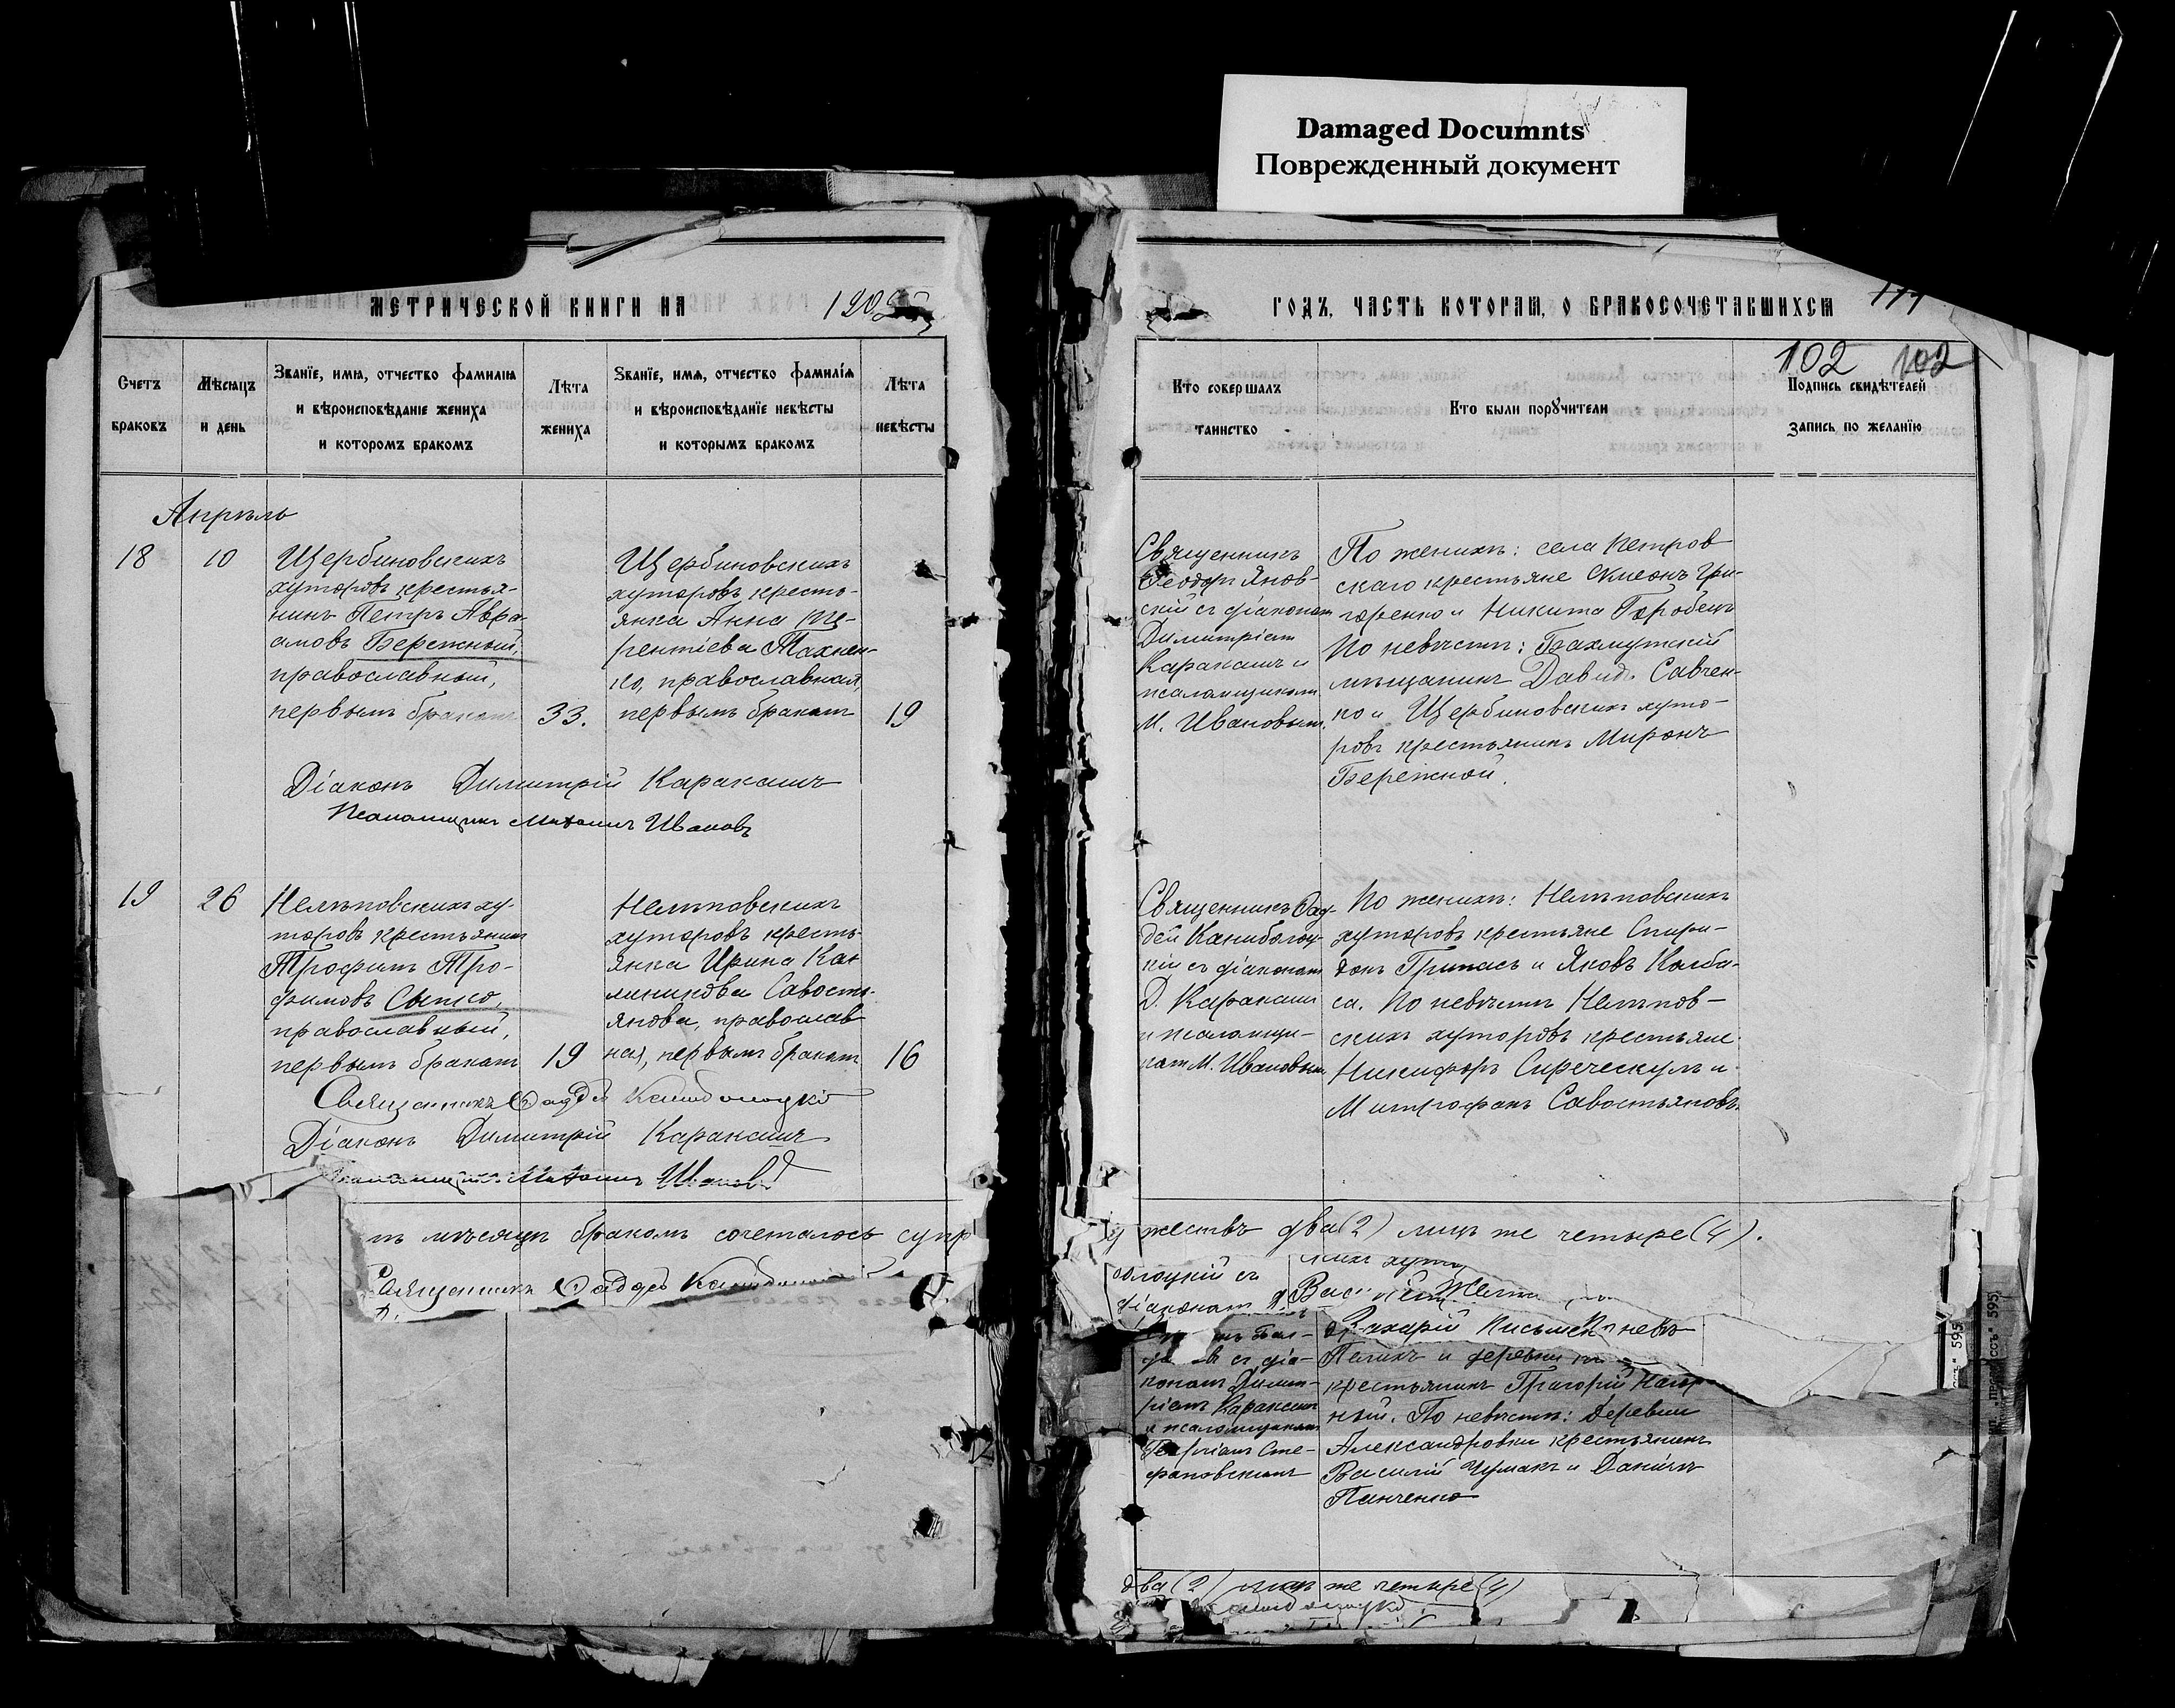 Damaged Documnts
Поврежденный документ
МЕТРИЧЕСКОЙ КНИГИ НА
190
ГОДЪ, ЧАСТЬ КОТОРАЯ, О БРАКОСОЧЕТАВШИХСЯ
102 102
Счетъ браковъ
Мѣсяцъ и день
Званїе, имя, отчество фамилїя
и вѣроисповѣданїе жениха
и которомъ бракомъ
Лѣта жениха
Званїе, имя, отчество фамилїя
и вѣроисповѣданїе невѣсты
и которымъ бракомъ
Лѣта невѣсты
Кто совершалъ
таинство
Кто были порꙋчители
Подпись свидѣтелей
запись по желанїю
Апрѣль
18
10
Щербиновскихъ
хуторовъ крестья-
нинъ Петръ Авра-
амовъ Бережный,
православный,
первымъ бракомъ
33.
Щербиновскихъ
хуторовъ кресть-
янка Анна Те-
рентіева Тахнен-
ко, православная,
первымъ бракомъ
19
Священникъ
Ѳеодоръ Янов-
скій съ діакономъ
Димитріемъ
Каракашъ и
псаломщикомъ
М. Ивановымъ.
По женихѣ: села Петров
скаго крестьяне Симеонъ Гри-
горенко и Никита Горобецъ
По невѣстѣ: Бахмутскій
мѣщанинъ Давидъ Савчен-
ко и Щербиновскихъ хуто-
ровъ крестьянинъ Миронъ
Бережной.
Діаконъ Димитрій Каракашъ
Псаломщикъ Михаилъ Ивановъ
19
26
Нелѣповскихъ ху-
торовъ крестьянинъ
Трофимъ Тро-
фимовъ Сытко,
православный,
первымъ бракомъ
19
Нелѣповскихъ
хуторовъ кресть-
янка Ирина Кал
линикова Савость-
янова, православ
ная, первымъ бракомъ
16
Священникъ Ѳад-
дей Каниболоц-
кій съ діакономъ
Д. Каракашъ
и псаломщи-
комъ М. Ивановым.
По женихѣ: Нелѣповскихъ
хуторовъ крестьяне Спири-
донъ Припасъ и Яковъ Колба-
са. По невѣстѣ Нелѣпов-
скихъ хуторовъ крестьяне
Никифоръ Сиреческулъ и
Митрофанъ Савостьяновъ.
Священникъ Ѳаддей Каниболоцкій
Діаконъ Димитрій Каракашъ
Псаломщикъ Михаилъ Ивановъ
мѣсяцѣ бракомъ сочеталось супр
жествъ два (2) лицъ же четыре (4).
Священникъ Ѳаддей
олоцкій съ
діакономъ
съ діа-
кономъ Димит-
ріемъ Каракашъ
и псаломщикомъ
Георгіемъ Сте-
фановскимъ
Захарій
и деревни
крестьянинъ Григорій
ный. По невѣстѣ: деревни
Александровки крестьянинъ
Василій Чумакъ и Даніилъ
Панченко
два (2) лицъ же четыре (4)